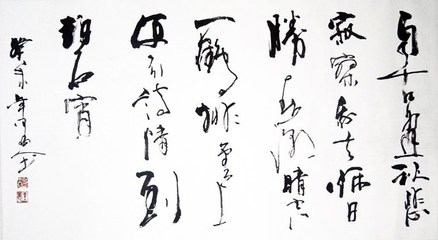 自古逢秋悲
寂寥我言秋日
勝春潮晴空
一鶴排雲上
便引詩情到
碧霄
癸未年